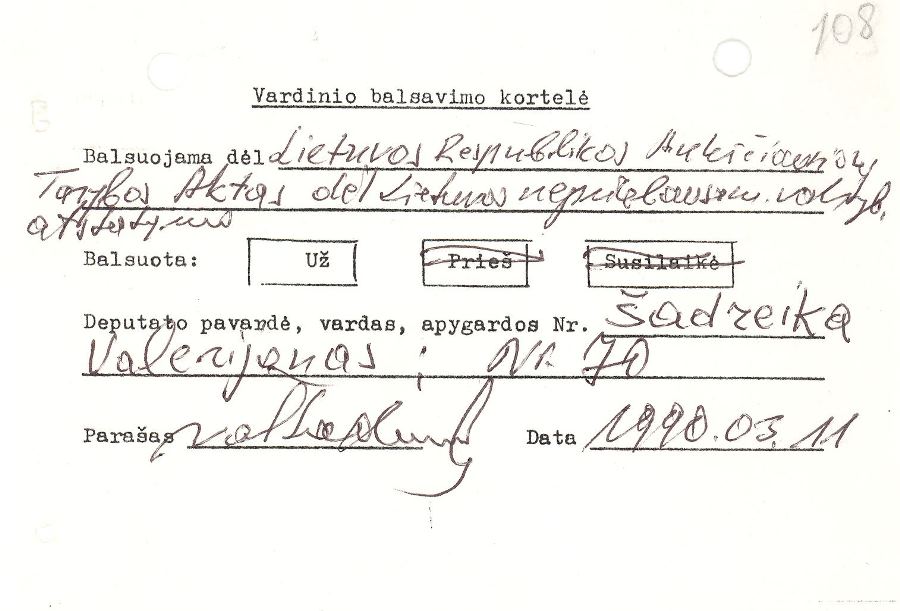 108
Vardinio balsavimo kortelė
Balsuojama dėl Lietuvos Respublikos Aukščiausios
Tarybos Aktas dėl Lietuvos nepriklausom. valstyb.
atstatymo
Balsuota: Už Prieš Susilaikė
Deputato pavardė, vardas, apygardos Nr. Šadreika
Valerijonas ; Nr. 70
Parašas Data 1990.03.11